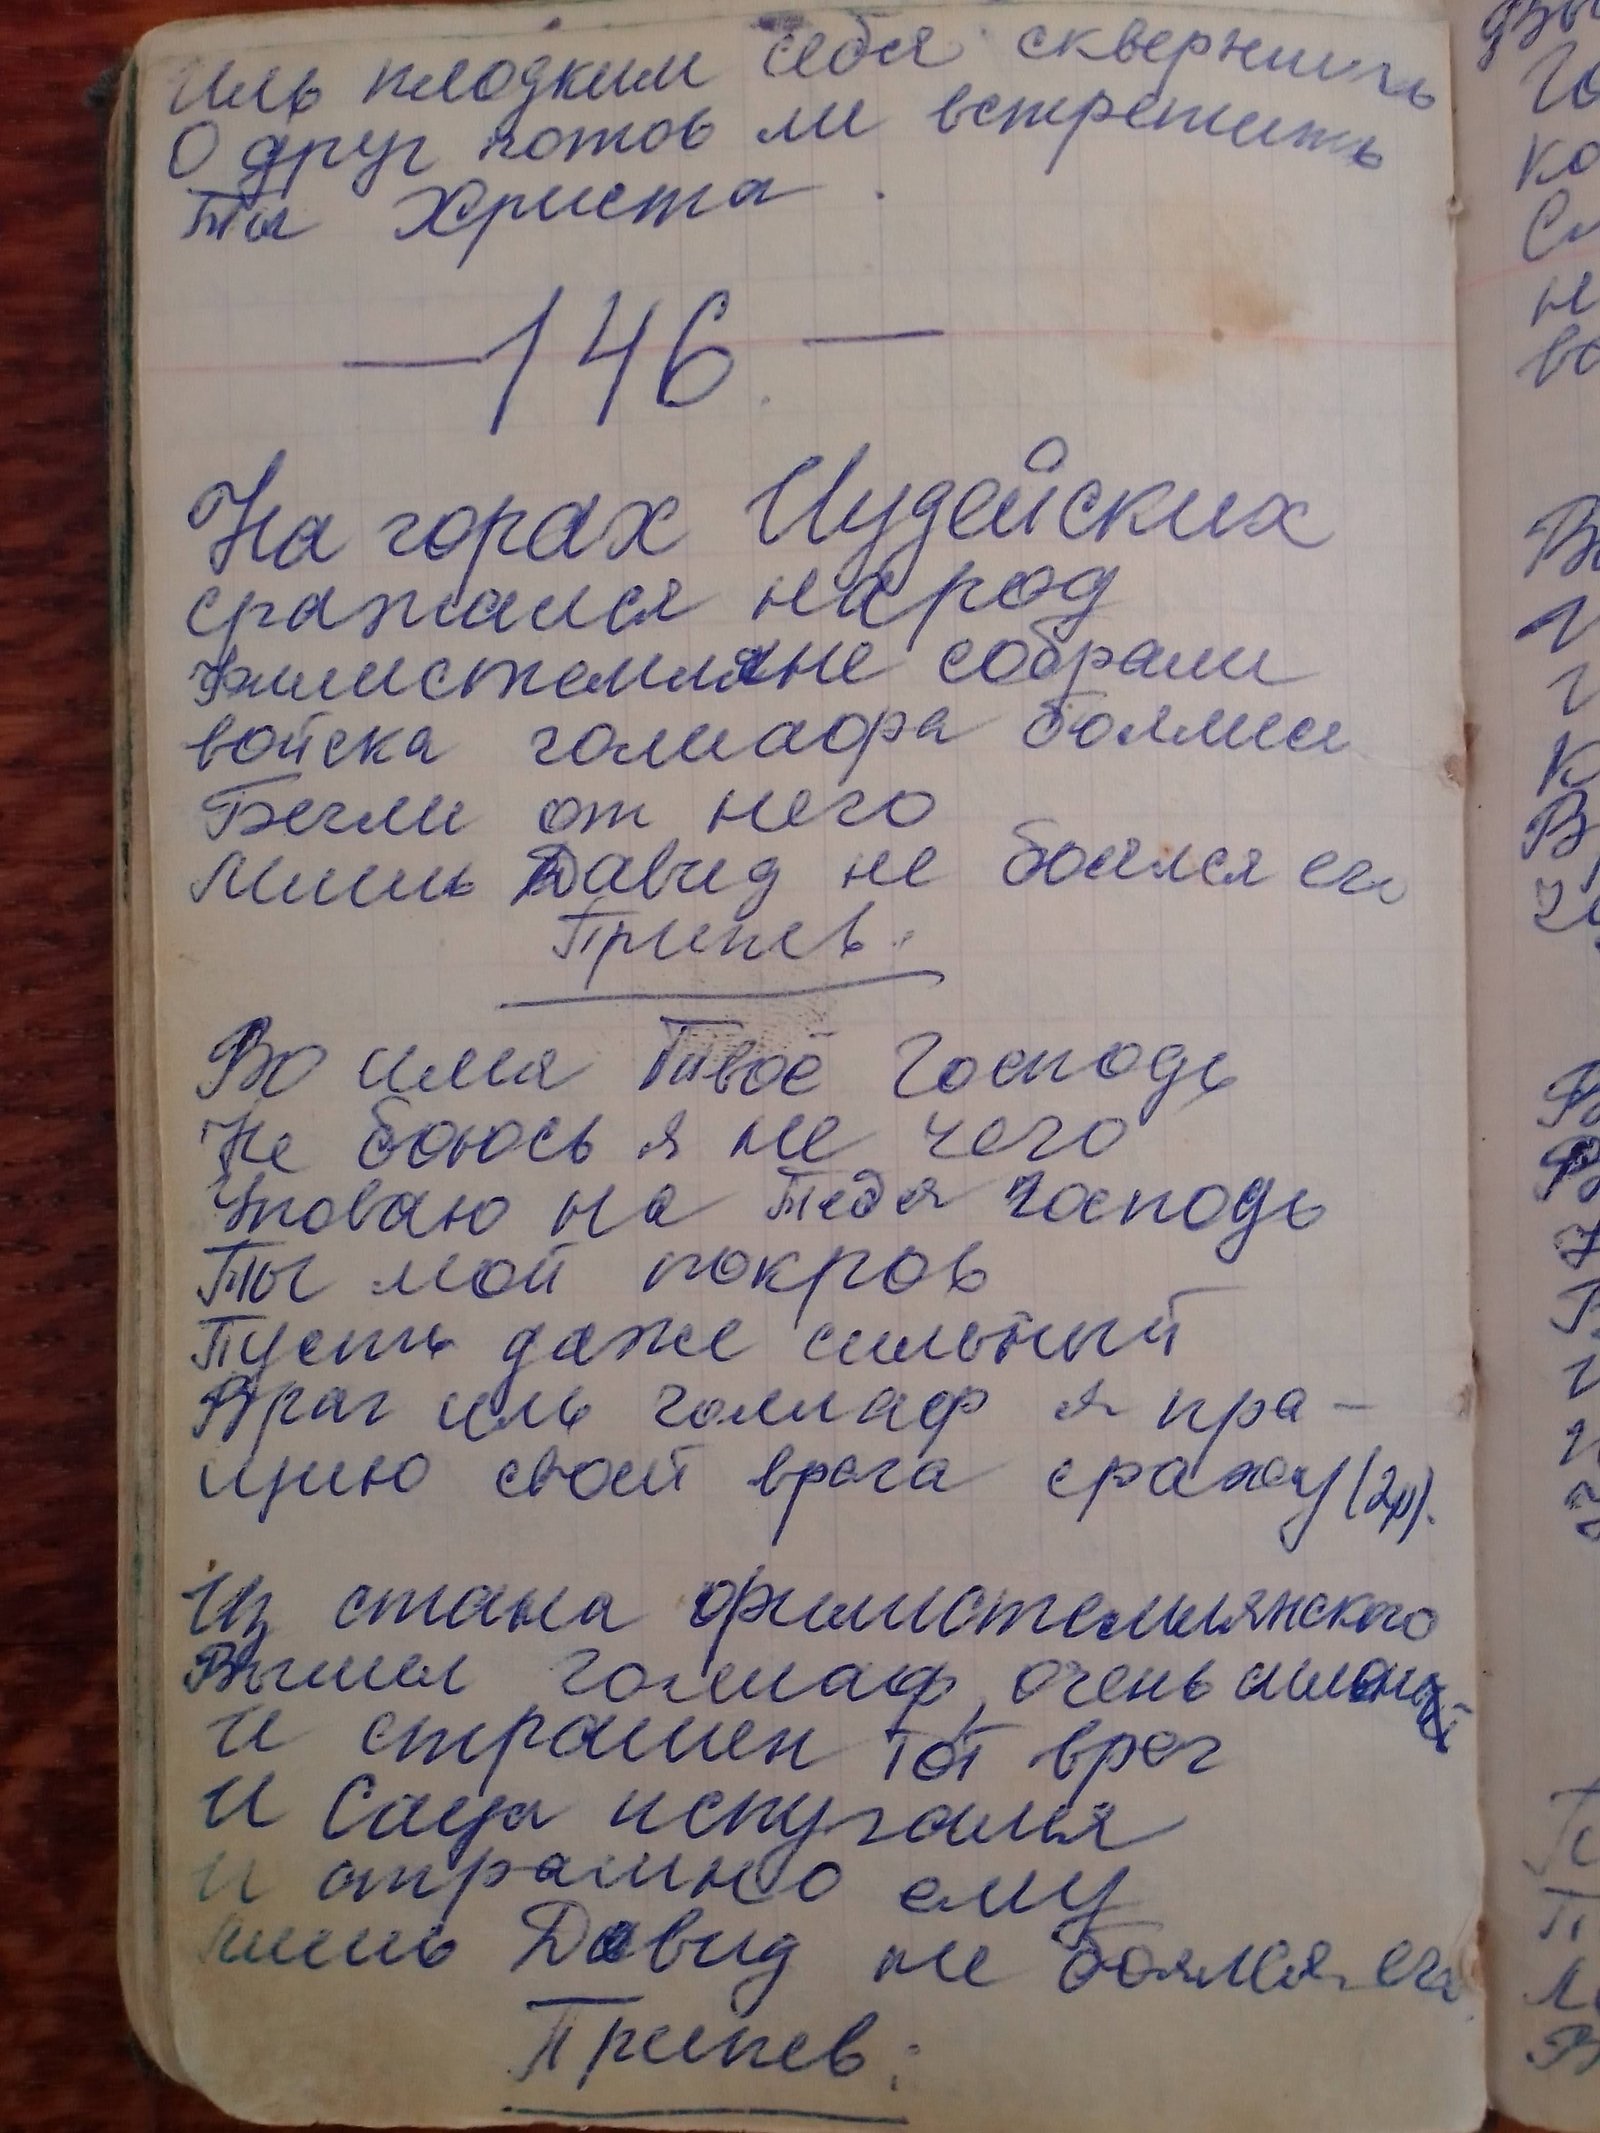 Иль плодким себя сквернить
О друг готов ли встретить
Ты Христа.
— 146. —
На горах Иудейских
сражался народ
Филистемляне собрали
войска голиафа боялись
Бегли от него
Лишь Давид не боялся его
Припев:
Во имя Твоё Господь
Не боюсь я не чего
Уповаю на Тебя Господь
Ты мой покров
Пусть даже сильный
Враг иль голиаф я пра-
щию своей врага сражу (2р).
Из стана филистемлянского
Вышел голиаф, очень сильный
И страшен тот враг
И Саул испугался
и страшно ему
лишь Давид не боялся его
Припев: